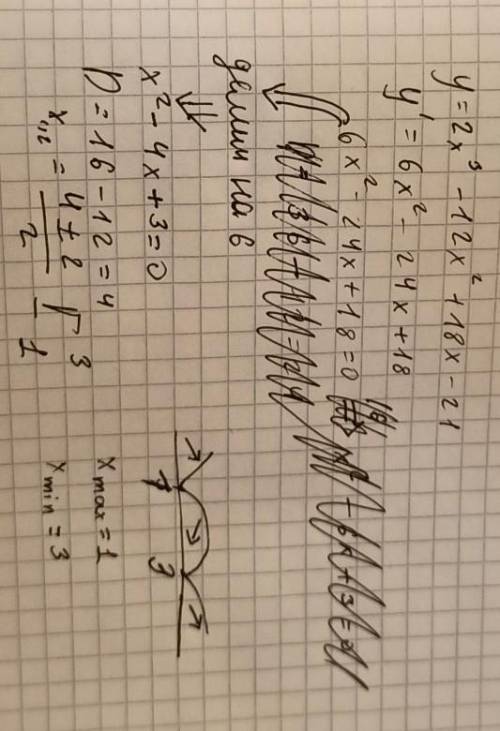 y = 2x³ - 12x² + 18x - 21
y' = 6x² - 24x + 18
6x² - 24x + 18 = 0
делим на 6
x² - 4x + 3 = 0
D = 16 - 12 = 4
x₁,₂ = (4 ± 2)/2
3
1
1 3
x max = 1
x min = 3